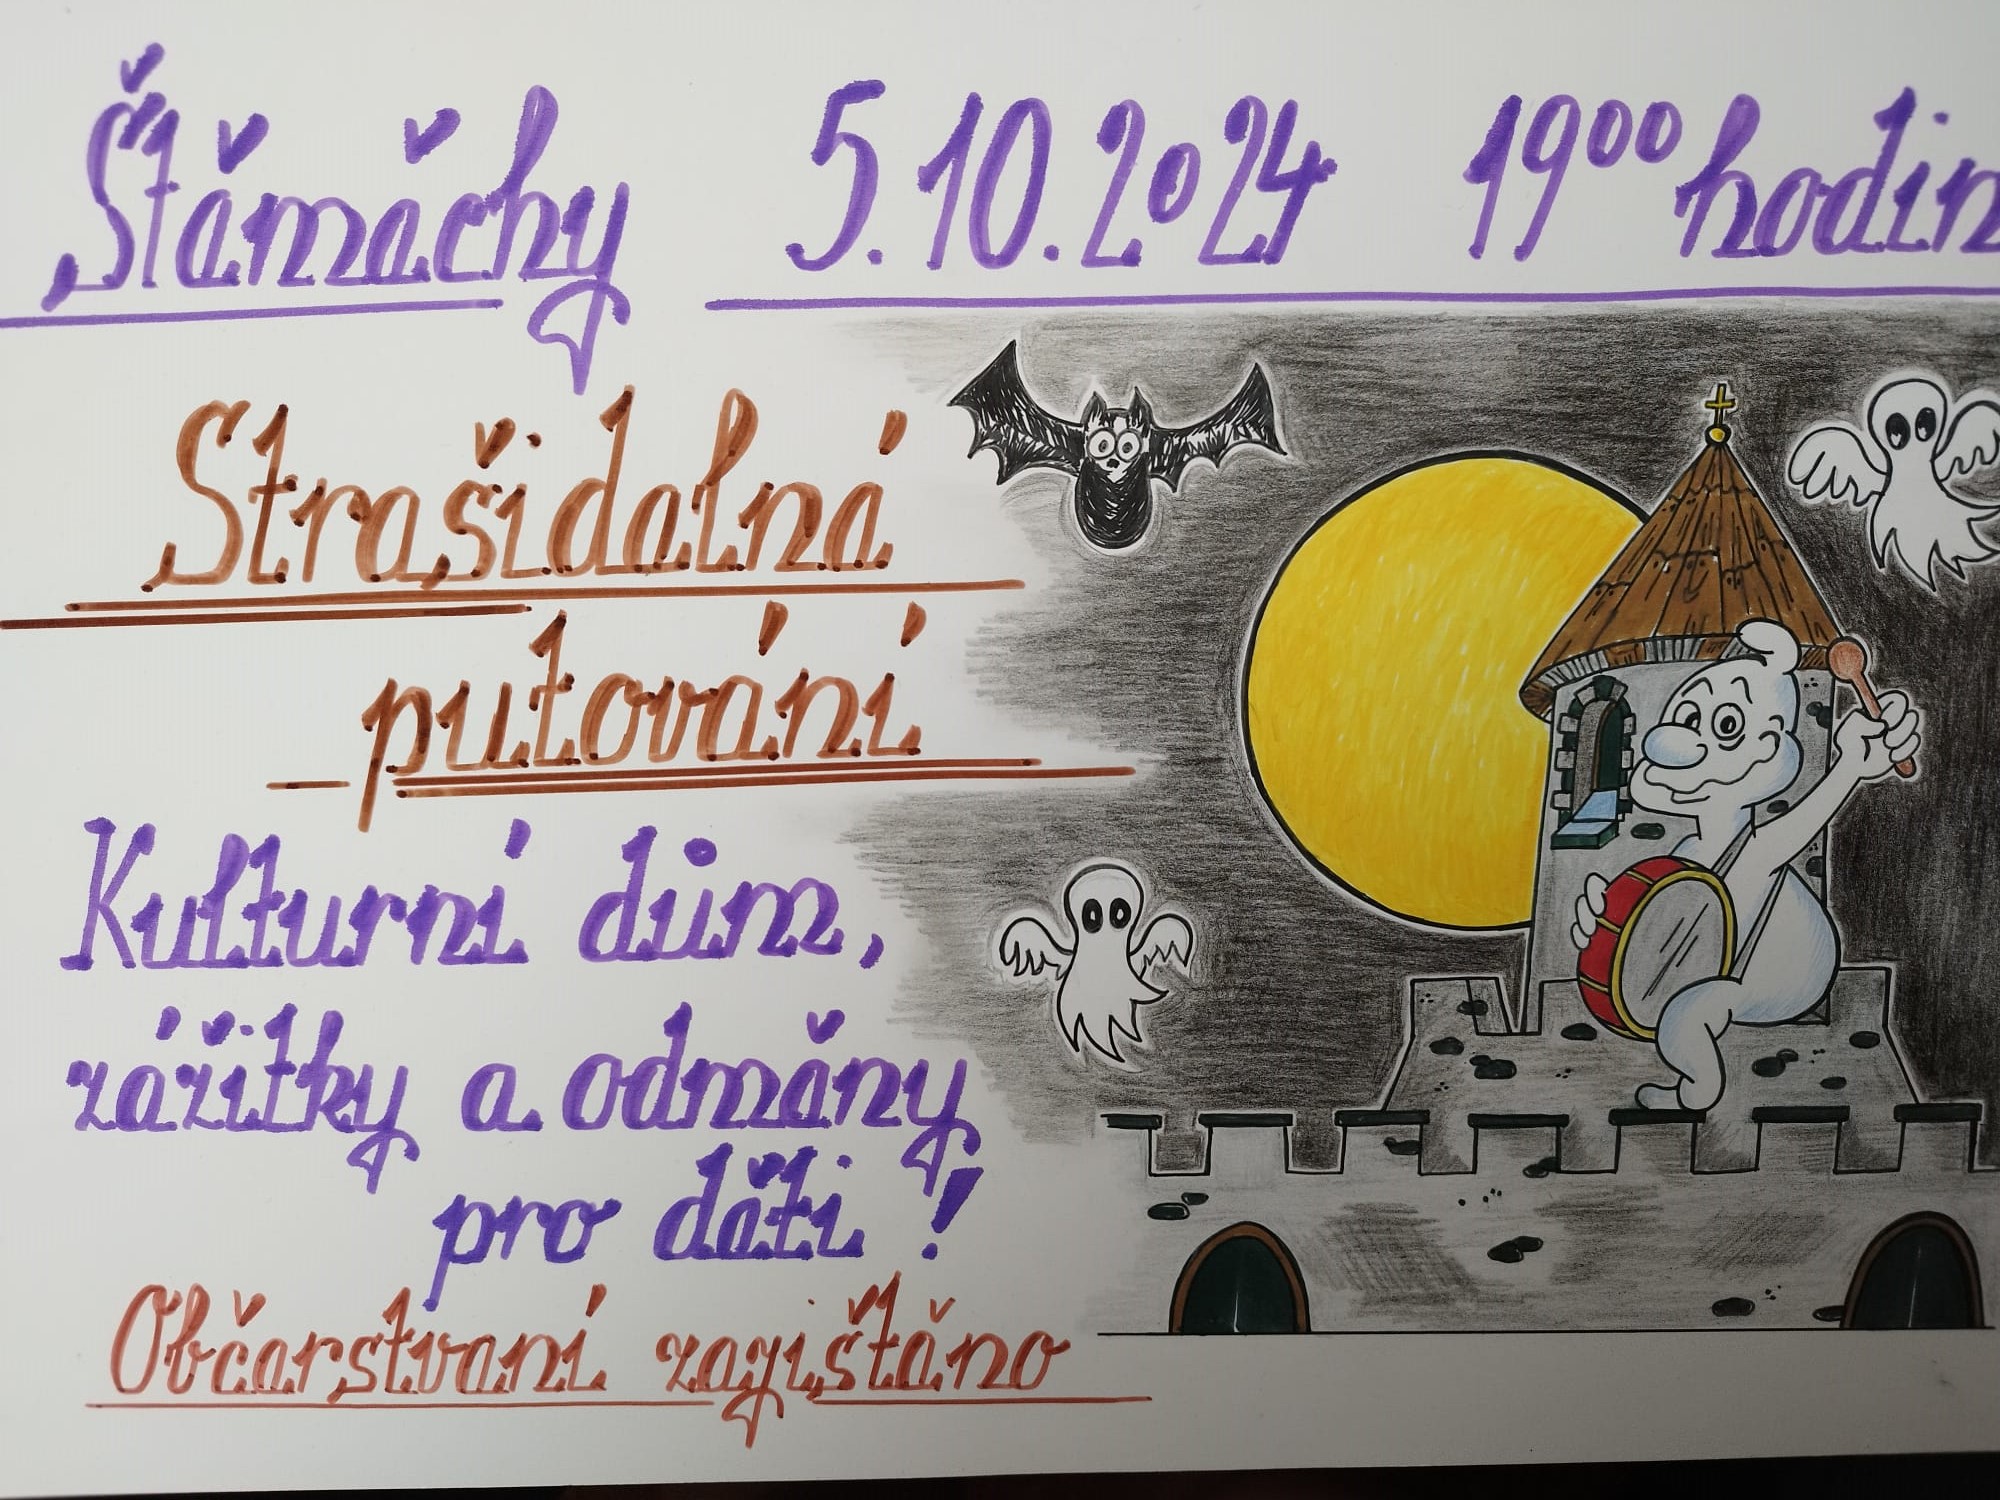 Štěměchy 5.10.2024 19⁰⁰ hodin
Strašidelná
putování
Kulturní dům,
zážitky a odměny
pro děti!
Občerstvení zajištěno